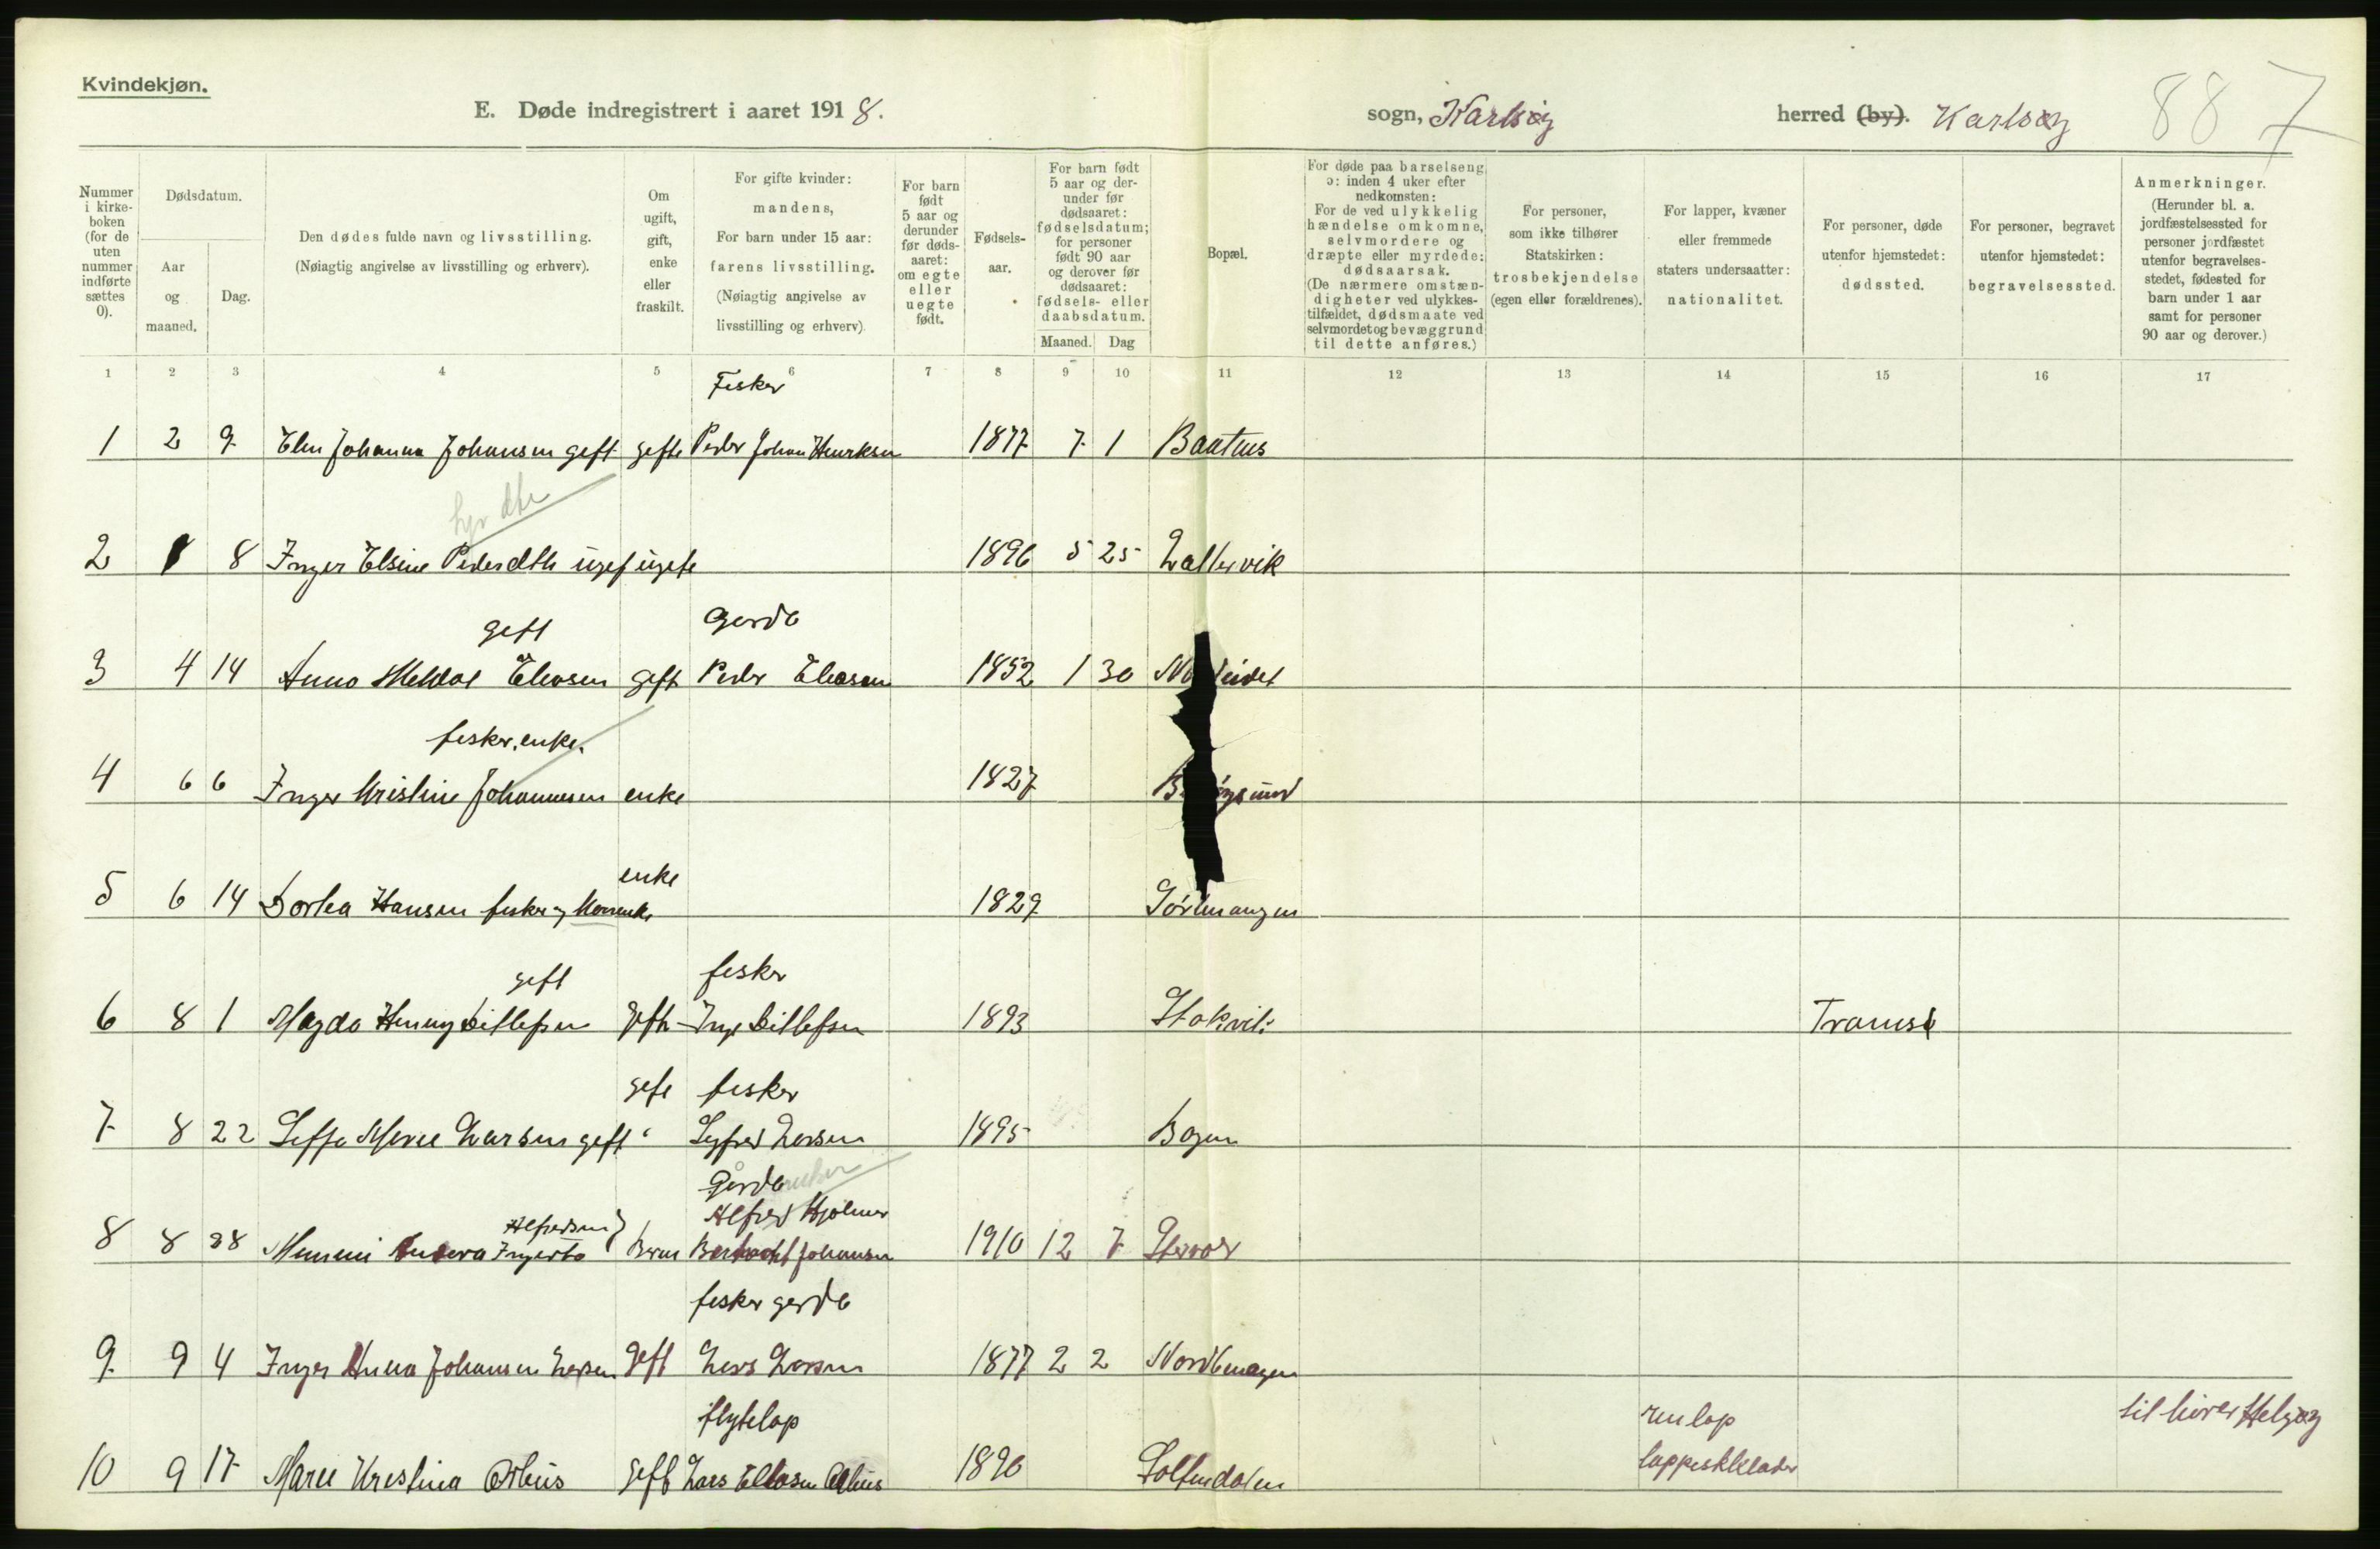 Kvindekjøn.
E. Døde indregistrert i aaret 1918.
sogn, Karlsøy
herred (by). Karlsøy
887
Nummer i kirke-boken (for de uten nummer indførte sættes 0).
Dødsdatum.
Aar og maaned.
Dag.
Den dødes fulde navn og livsstilling.
(Nøiagtig angivelse av livsstilling og erhverv).
Om ugift, gift, enke eller fraskilt.
For gifte kvinder: mandens,
For barn under 15 aar: farens livsstilling.
(Nøiagtig angivelse av livsstilling og erhverv)
For barn født 5 aar og derunder før døds-aaret: om egte eller uegte født.
Fødsels-aar.
For barn født 5 aar og der-under før dødsaaret: fødselsdatum; for personer født 90 aar og derover før dødsaaret: fødsels- eller daabsdatum.
Maaned.
Dag
Bopæl.
For døde paa barselseng ɔ: inden 4 uker efter nedkomsten:
For de ved ulykkelig hændelse omkomne, selvmordere og dræpte eller myrdede: dødsaarsak.
(De nærmere omstæn-digheter ved ulykkes-tilfældet, dødsmaate ved selvmordet og bevæggrund til dette anføres.)
For personer, som ikke tilhører Statskirken: trosbekjendelse (egen eller forældrenes).
For lapper, kvæner eller fremmede staters undersaatter: nationalitet.
For personer, døde utenfor hjemstedet: dødssted.
For personer, begravet utenfor hjemstedet: begravelsessted.
Anmerkninger.
(Herunder bl. a. jordfæstelsessted for personer jordfæstet utenfor begravelses-stedet, fødested for barn under 1 aar samt for personer 90 aar og derover.)
1 2 3 4 5 6 7 8 9 10 11 12 13 14 15 16 17
Fisker
1 2 9 Elen Johanna Johansen gift gifte Peder Johan Henriksen 1877 7 1
2 8 Inger Elsine Pedersdtr ugif ugifte 1896 5 25 Lattervik
gift Gardb
3 4 14 Anna Meldal Eliasen gift Peder Eliasen 1852 1 30
fisker.enke.
4 6 6 Inger Kristine Johannesen enke 1827
enke
5 6 14 Dortea Hansen fisker 1829
gift fisker
6 8 1 Magda Henny Ditlefsen Gift Inge Ditlefsen 1893 Stakvik Tromsø
gift fisker
7 8 22 Marie Larsen gift Larsen 1895 Bogen
Gårdb
Alfred Hjalmar
8 8 28 Ingerta Barn Johansen 1910 12 7
fisker gardb
9 9 4 Inger Anna Johansen Larsen Gift Lars Larsen 1877 2 2
flytelap renlap til hører Helgøy
10 9 17 Marie Kristina gift Lars 1890